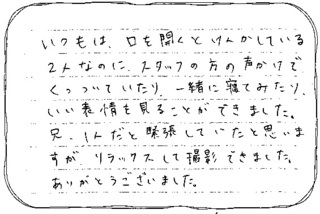 いつもは、口を開くとけんかしている
2人なのに、スタッフの方の声かけで
くっついていたり、一緒に寝てみたり、
いい表情を見ることができました。
兄、1人だと緊張していたと思いま
すが リラックスして撮影できました。
ありがとうございました。